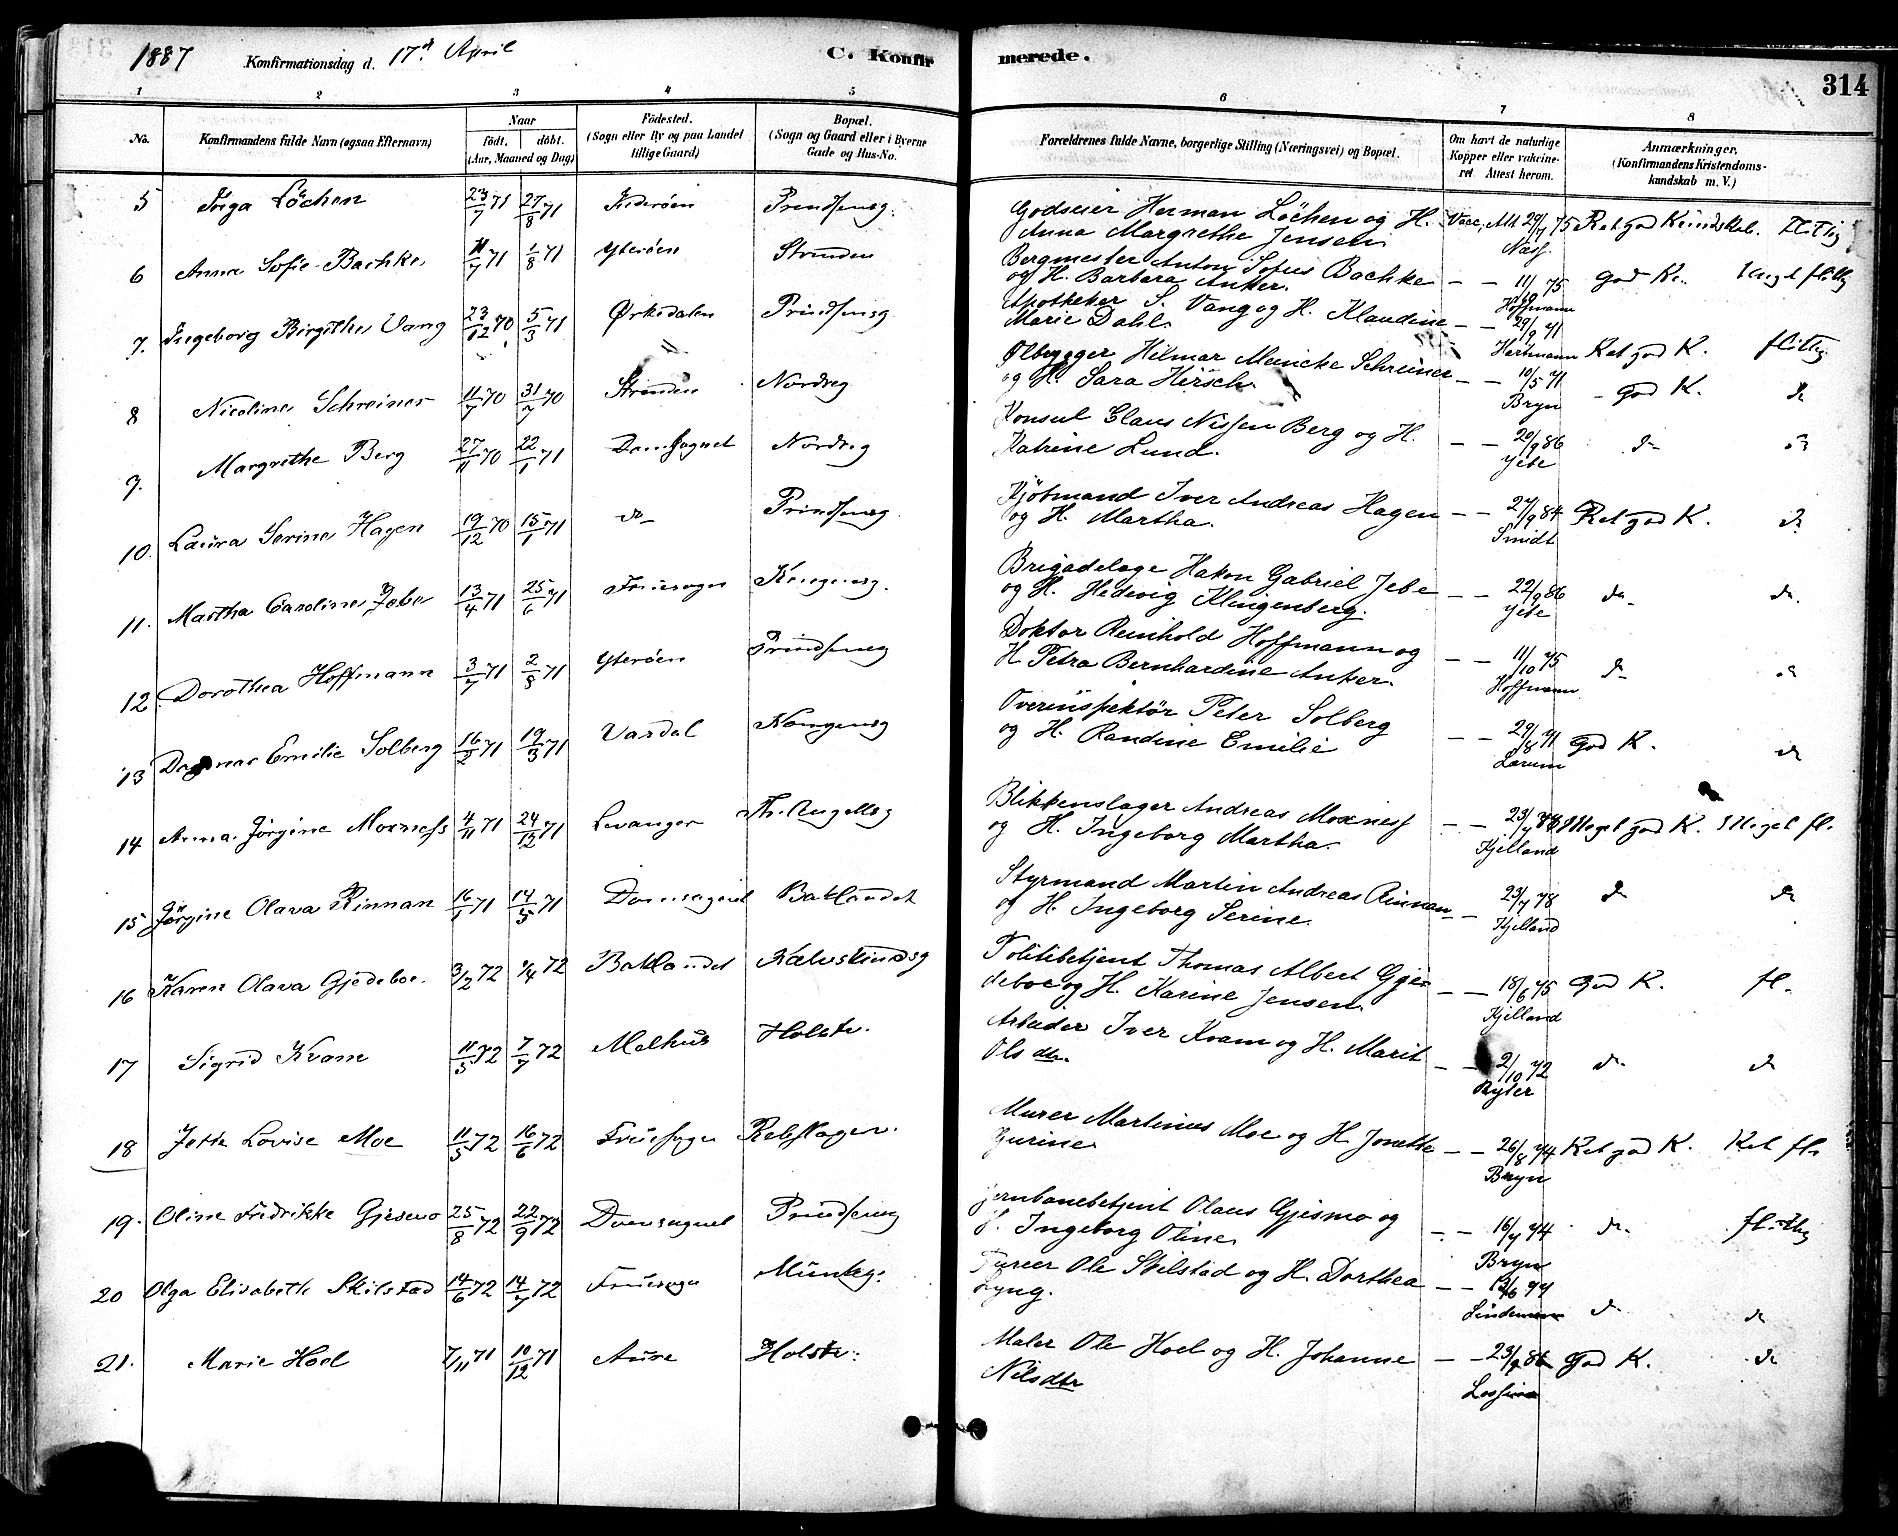 1887 Konfirmationsdag d. 17d April C. Konfirmerede. 314
1 2 3 4 5 6 7 8
No. Konfirmandens fulde Navn (ogsaa Efternavn) Naar födt. döbt. (Aar, Maaned og Dag) Födested. (Sogn eller By og paa Landet tillige Gaard) Bopæl. (Sogn og Gaard eller i Byerne Gade og Hus-No. Forældrenes fulde Navne, borgerlige Stilling (Næringsvei) og Bopæl. Om havt de naturlige Kopper eller vaccineret Attest herom. Anmærkninger. (Konfirmandens Kristendomskundskab m. V.)
5 Inga Löchen 23/7 71 27/8 71 Inderöen Prindsensg. Godseier Herman Löchen og H. Vacc. Att 29/7 75 Ret god Kundskab. Flittig
Anna Margrethe Jensen
6 Anna Sofie Bachke 11/7 71 1/8 71 Ytteröen Strinden Bergmester Anton Sofus Bachke - - 11/10 75 god K. Meget flittig
og H. Barbara Anker. Hoffmann
7. Ingeborg Birgithe Vang 23/12 70 5/3 71 Ørkedalen Prindsensg Apotheker S. Vang og H. Klaudine - - 29/9 71 Ret god K. flittig
Marie Dahl. Hartmann
8 Nicoline Schreiner 11/7 70 31/7 70 Strinden Nordreg Ølbrygger Hilmar Meincke Schreiner - - 10/5 71 god K. do
og H. Sara Hirsch Bryn
9. Margrethe Berg 27/11 70 22/1 71 Domsognet Nordreg Konsul Claus Nissen Berg og H. - - 20/9 86 do do
Katrine Lund. Jebe
10. Laura Serine Hagen 19/12 70 15/1 71 do Prindsensg. Kjöbmand Iver Andreas Hagen - - 27/9 84 Ret god K. do
og H. Martha. Smidt
11. Martha Caroline Jebe 13/4 71 25/6 71 Fruesogn Kongensg. Brigadelæge Hakon Gabriel Jebe - - 22/9 86 do do.
og H. Hedevig Klingenberg. Jebe
12 Dorothea Hoffmann 3/7 71 2/8 71 Ytteröen Prindsensg Doktor Reinhold Hoffmann og - - 11/10 75 do do
H. Petra Bernhardine Anker. Hoffmann
13 Dagmar Emilie Solberg 16/2 71 19/3 71 Vardal Kongensg Overinspektör Peter Solberg - - 29/8 71 God K. do
og H. Randine Emilie Larum
14 Anna Jörgine Moxness 4/11 71 24/12 71 Levanger Th. Angellsg Blikkenslager Andreas Moxness - - 23/7 78 Meget god K. Meget fl.
og H. Ingeborg Martha. Kjelland
15 Jörgine Olava Rinnan 16/1 71 14/5 71 Domsognet Baklandet Styrmand Martin Andreas Rinnan - 23/7 78 do do
og H. Ingeborg Serine. Kjelland
16 Karen Olava Gjedeboe. 3/2 72 1/4 72 Baklandet Kalvskindsg Politibetjent Thomas Albert Gje- - - 18/6 75 God K. fl.
deboe og H. Karine Jensen. Kjelland
17 Sigrid Kvam 11/5 72 7/7 72 Melhus Holstv. Arbeider Iver Kvam og H. Marit - - 2/10 72 do do
Olsdtr.
18 Jette Lovise Moe 11/5 72 16/6 72 Fruesogn Murer Martinus Moe og H. Jonette - - 26/8 74 Ret god K. Ret fl.
Gurine Bryn
19. Oline Fredrikke Gjesmo 25/8 72 22/9 72 Domsognet Prindsensg Jernbanebetjent Olaus Gjesmo og - - 16/7 74 do. flittig
H. Ingeborg Oline. Bryn
20 Olga Elisabeth Skilstad 14/6 72 14/7 72 Fruesogn Munkeg. Ole Skilstad og H. Dorthea - - do do
Lyng. Lindeman
21. Marie Hoel 7/11 71 10/12 71 Aure Holstv. Maler Ole Hoel og H. Johanne - - 23/9 86 God K. do
Nilsdtr